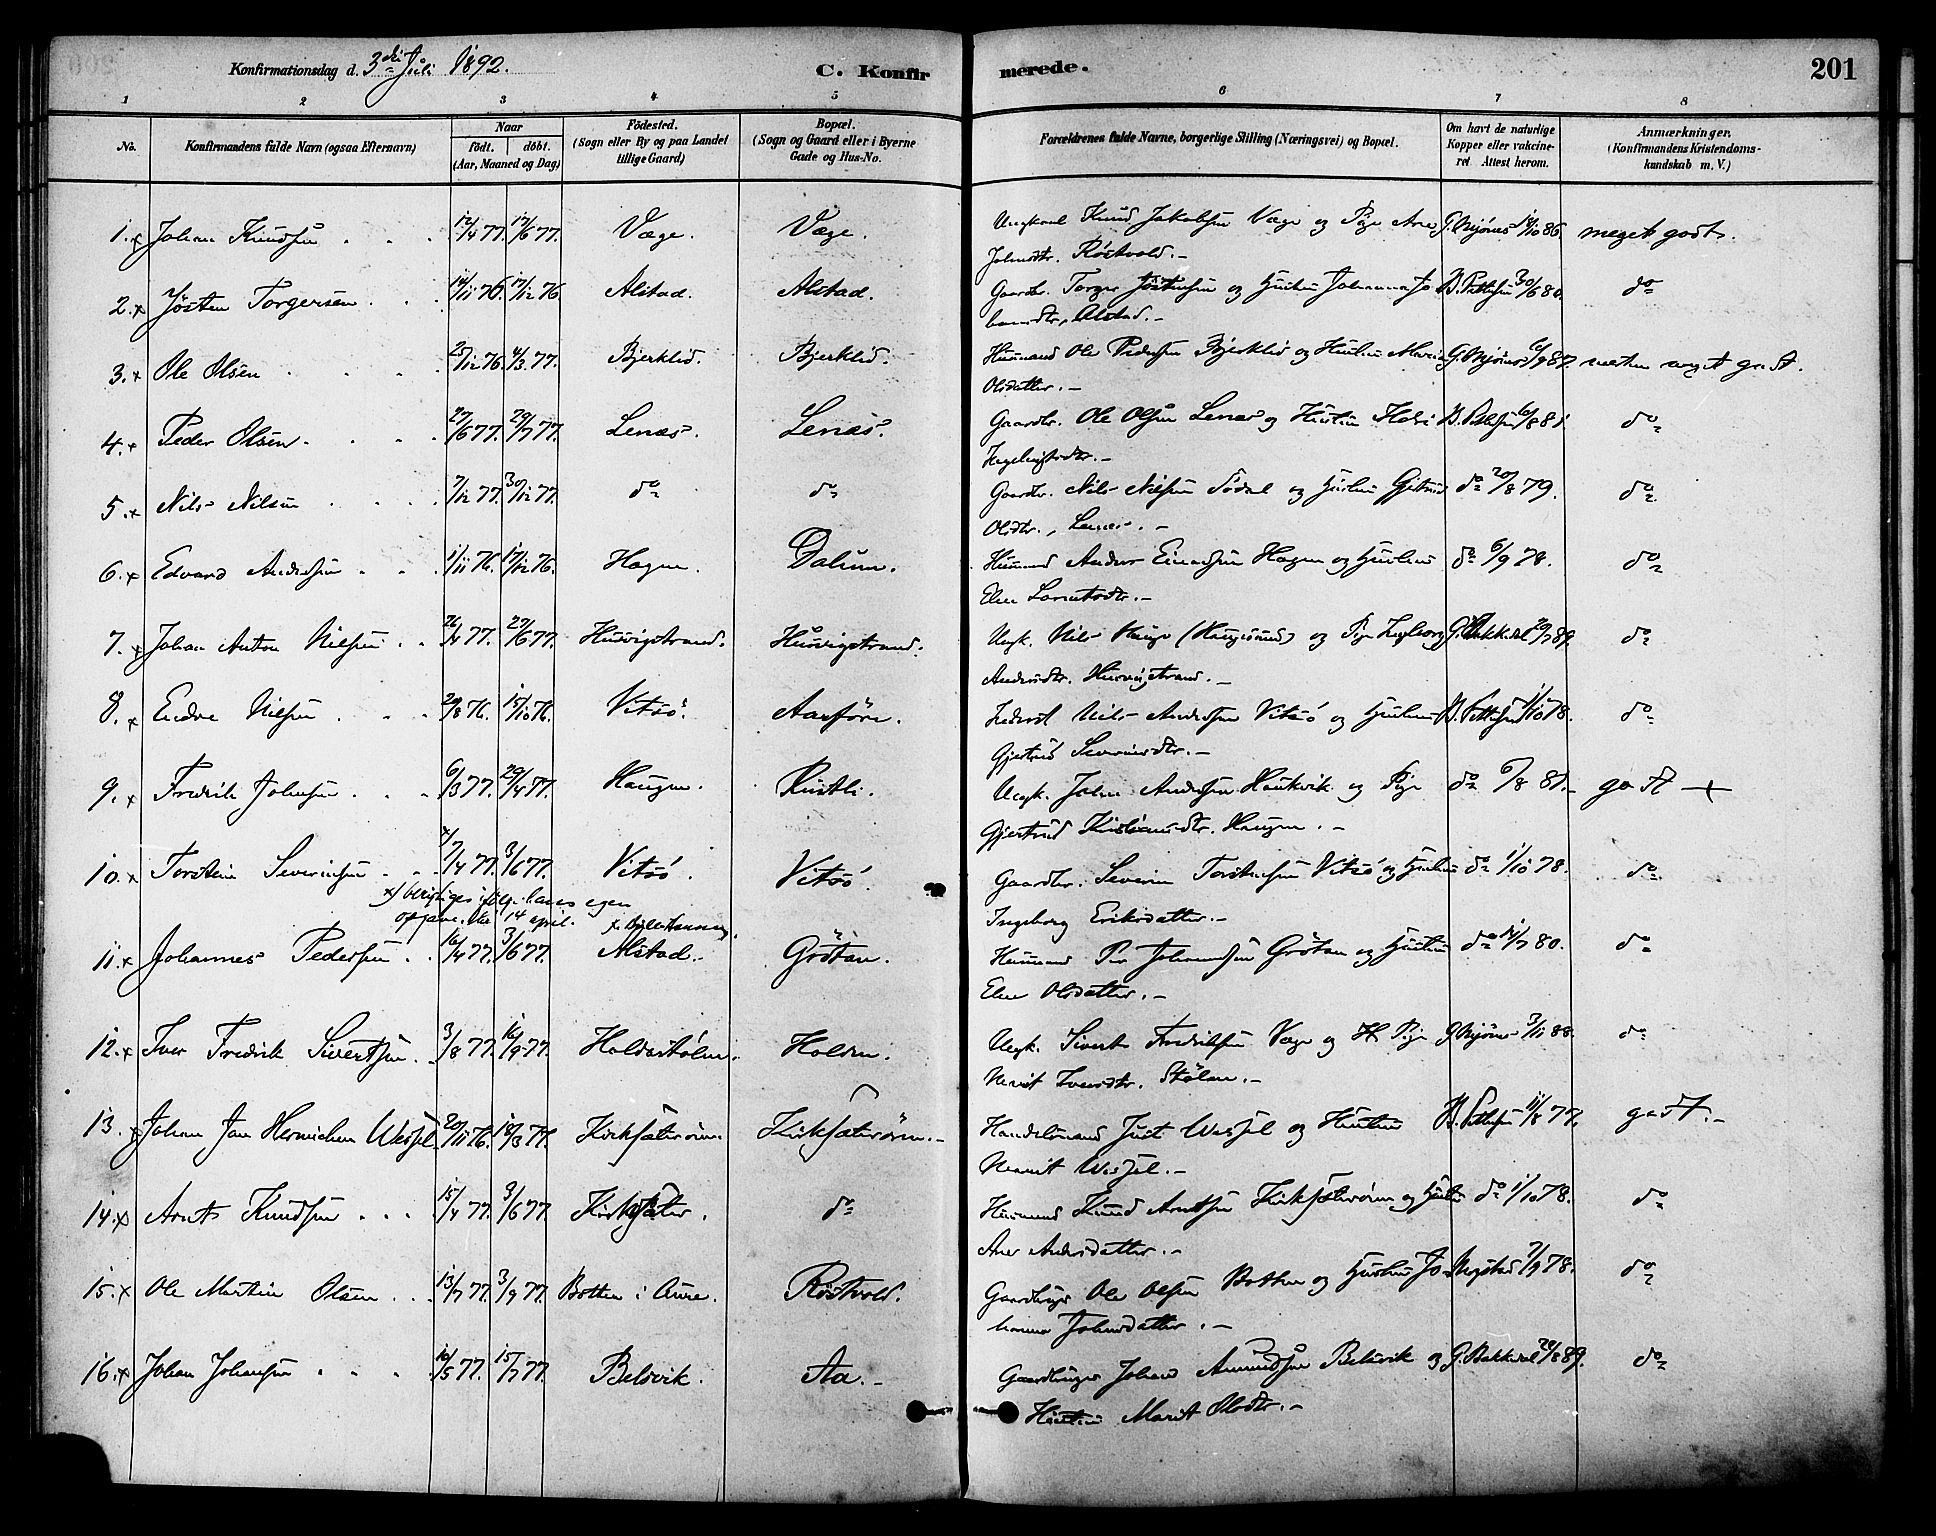 Konfirmationsdag d. 3die Juli 1892.
C. Konfir
merede.
201
1 2 3 4 5 6 7 8
No.
Konfirmandens fulde Navn (ogsaa Efternavn)
Naar
födt. döbt.
(Aar, Maaned og Dag)
Födested.
(Sogn eller By og paa Landet
tillige Gaard)
Bopæl.
(Sogn og Gaard eller i Byerne
Gade og Hus-No.
Forældrenes fulde Navne, borgerlige Stilling (Næringsvei) og Bopæl.
Om havt de naturlige
Kopper eller vakcine-
ret. Attest herom.
Anmærkninger.
(Konfirmandens Kristendoms-
kundskab m. V.)
1. x Johan Knudsen 12/4 77. 17/6 77. Væge. Væge. Ungkarl Knud Jakobsen Væge og Pige Ane G. Mjönes 14/10 86. meget godt.
Johnsdtr. Röstvold.-
2. x Jösten Torgersen 14/11 76. 17/12 76. Alstad. Alstad. Gaardbr. Torger Jöstensen og Hustru Johanna Jo B. Pettersen 30/6 80. do
hansdtr, Alstad.-
3. x Ole Olsen 25/12 76. 4/3 77. Bjerklid. Bjerklid. Husmand Ole Pedersen Bjerklid og Hustru Marie G. Mjönes 6/9 87. næsten meget godt.
Olsdatter.-
4. x Peder Olsen 27/6 77. 29/7 77. Lenæs. Lenæs. Gaardbr. Ole Olsen Lenæs og Hustru B. Pettersen 6/8 81 do
Ingebrigtsdtr.-
5. x Nils Nilsen 7/12 77. 30/12 77. do do Gaardbr. Nils Nilsen Södal og Hustru Gjertrud do 20/8 79. do
Olsdtr., Lenæs.-
6. x Edvard Andersen 1/11 76. 17/12 76. Hagen. Dalum. Husmand Anders Einarsen Hagen og Hustru do 6/9 78. do
Elen Lorntsdtr.-
7. x Johan Anton Nilsen 77. 27/6 77. Husvigstrand. Husvigstrand. Ungk. Nils Hauge (Haugesund) og Pige Ingeborg G. Bakkedal 29/7 89. do
Andersdtr. Husvigstrand.-
8. x Endre Nilsen 29/8 76. 15/10 76. Vitsö. Aarsöre. Inderst Nils Andersen Vitsö og Hustru B. Pettersen 1/10 78. do
Gjertrud Severinsdtr.-
9. x Fredrik Johnsen 6/3 77. 29/4 77. Haugen. Rustli. Ungk. John Andersen Haukvik og Pige do 6/8 81.- godt +
Gjertrud Kristiansdtr. Haugen.-
10. x Torstein Severinsen x) 7/4 77. 3/6 77. Vitsö. Vitsö. Gaardbr. Severin Torstensen Vitsö og Hustru do 1/10 78. do
Ingeborg Eriksdatter.-
x) berigtiges ifølg. hans egen
opgave, til 14 april.
11. x Johannes Pedersen 16/4 77. 3/6 77. Alstad.- Grötan. Husmand Per Johannesen Grötan og Hustru do 14/7 80. do
Elen Olsdatter.-
12. x Iver Fredrik Sivertsen 3/8 77. 16/9 77. Holderholmen. Holden. Ungk. Sivert Fredriksen Væge og Pige G. Mjönes 3/11 88. do
Marit Iversdtr. Stölan.-
13. x Johan Jan Hermichen Wessel 20/11 76. 18/3 77. Kirksæterören. Kirksæterören.- Handelsmand Just Wessel og Hustru B. Pettersen 11/8 77. godt.-
Marit Wessel.-
14. x Arnt Knudsen 15/4 77. 3/6 77. Kirksæter. do Husmand Knud Arntsen Kirksæterören og Hustru do 1/10 78. do
Ane Andersdatter.-
15. x Ole Martin Olsen 13/7 77. 3/9 77. Botten i Aure. Röstvold. Gaardbruger Ole Olsen Botten og Hustru Jo- Megstad 7/9 78. do
hanna Johnsdatter.-
16. x Johan Johansen 10/5 77. 15/7 77. Belsvik. Aa.- Gaardbruger Johan Amundsen Belsvik og G. Bakkedal 20/8 89. do
Hustru Marit Olsdtr.-